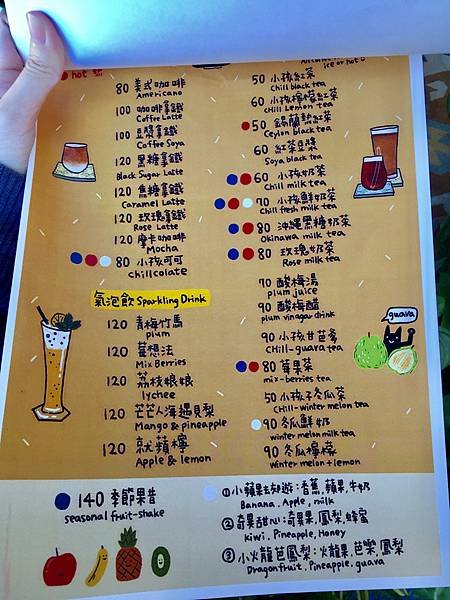 hot
80 美式咖啡
Americano
100 咖啡拿鐵
Coffee Latte
100 豆漿拿鐵
Coffee Soya
120 黑糖拿鐵
Black Sugar Latte
120 焦糖拿鐵
Caramel Latte
120 玫瑰拿鐵
Rose Latte
120 摩卡咖啡
Mocha
80 小孩可可
Chillcolate
氣泡飲 Sparkling Drink
120 青梅竹馬
plum
120 莓想法
Mix Berries
120 荔枝娘娘
lychee
120 芒芒人海遇貝梨
Mango & pineapple
120 就蘋檸
Apple & lemon
ice or hot
50 小孩紅茶
Chill black tea
60 小孩檸檬紅茶
Chill Lemon tea
50 錫蘭熱紅茶
Ceylon black tea
60 紅茶豆漿
Soya black tea
60 小孩奶茶
Chill milk tea
70 小孩鮮奶茶
Chill fresh milk tea
80 沖繩黑糖奶茶
Okinawa milk tea
80 玫瑰奶茶
Rose milk tea
70 酸梅湯
plum juice
90 酸梅醋
plum vinagar drink
90 小孩甘芭爹
Chill-guava tea
80 莓果茶
mix-berries tea
50 小孩子冬瓜茶
Chill-winter melon tea
90 冬瓜鮮奶
winter melon milk tea
90 冬瓜檸檬
Winter melon + lemon
guava
140 季節果昔
seasonal fruit-shake
①小蘋果去知遊：香蕉，蘋果，牛奶
Banana, Apple, milk
②奇果甜心：奇異果，鳳梨，蜂蜜
Kiwi, Pineapple, Honey
③小火龍芭鳳梨：火龍果，芭樂，鳳梨
Dragonfruit, Pineapple, guava